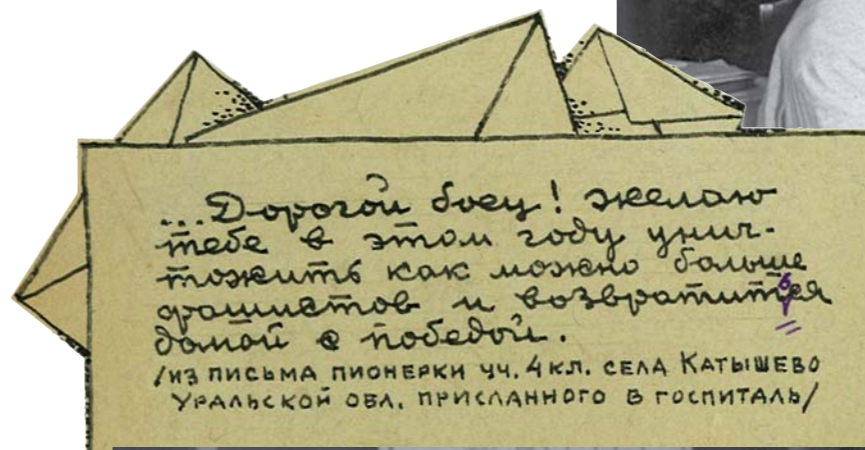 ...Дорогой боец! желаю
тебе в этом году унич-
тожить как можно больше
фашистов и возвратиться
домой с победой.
/ИЗ ПИСЬМА ПИОНЕРКИ УЧ. 4 КЛ. СЕЛА КАТЫШЕВО
УРАЛЬСКОЙ ОБЛ. ПРИСЛАННОГО В ГОСПИТАЛЬ/